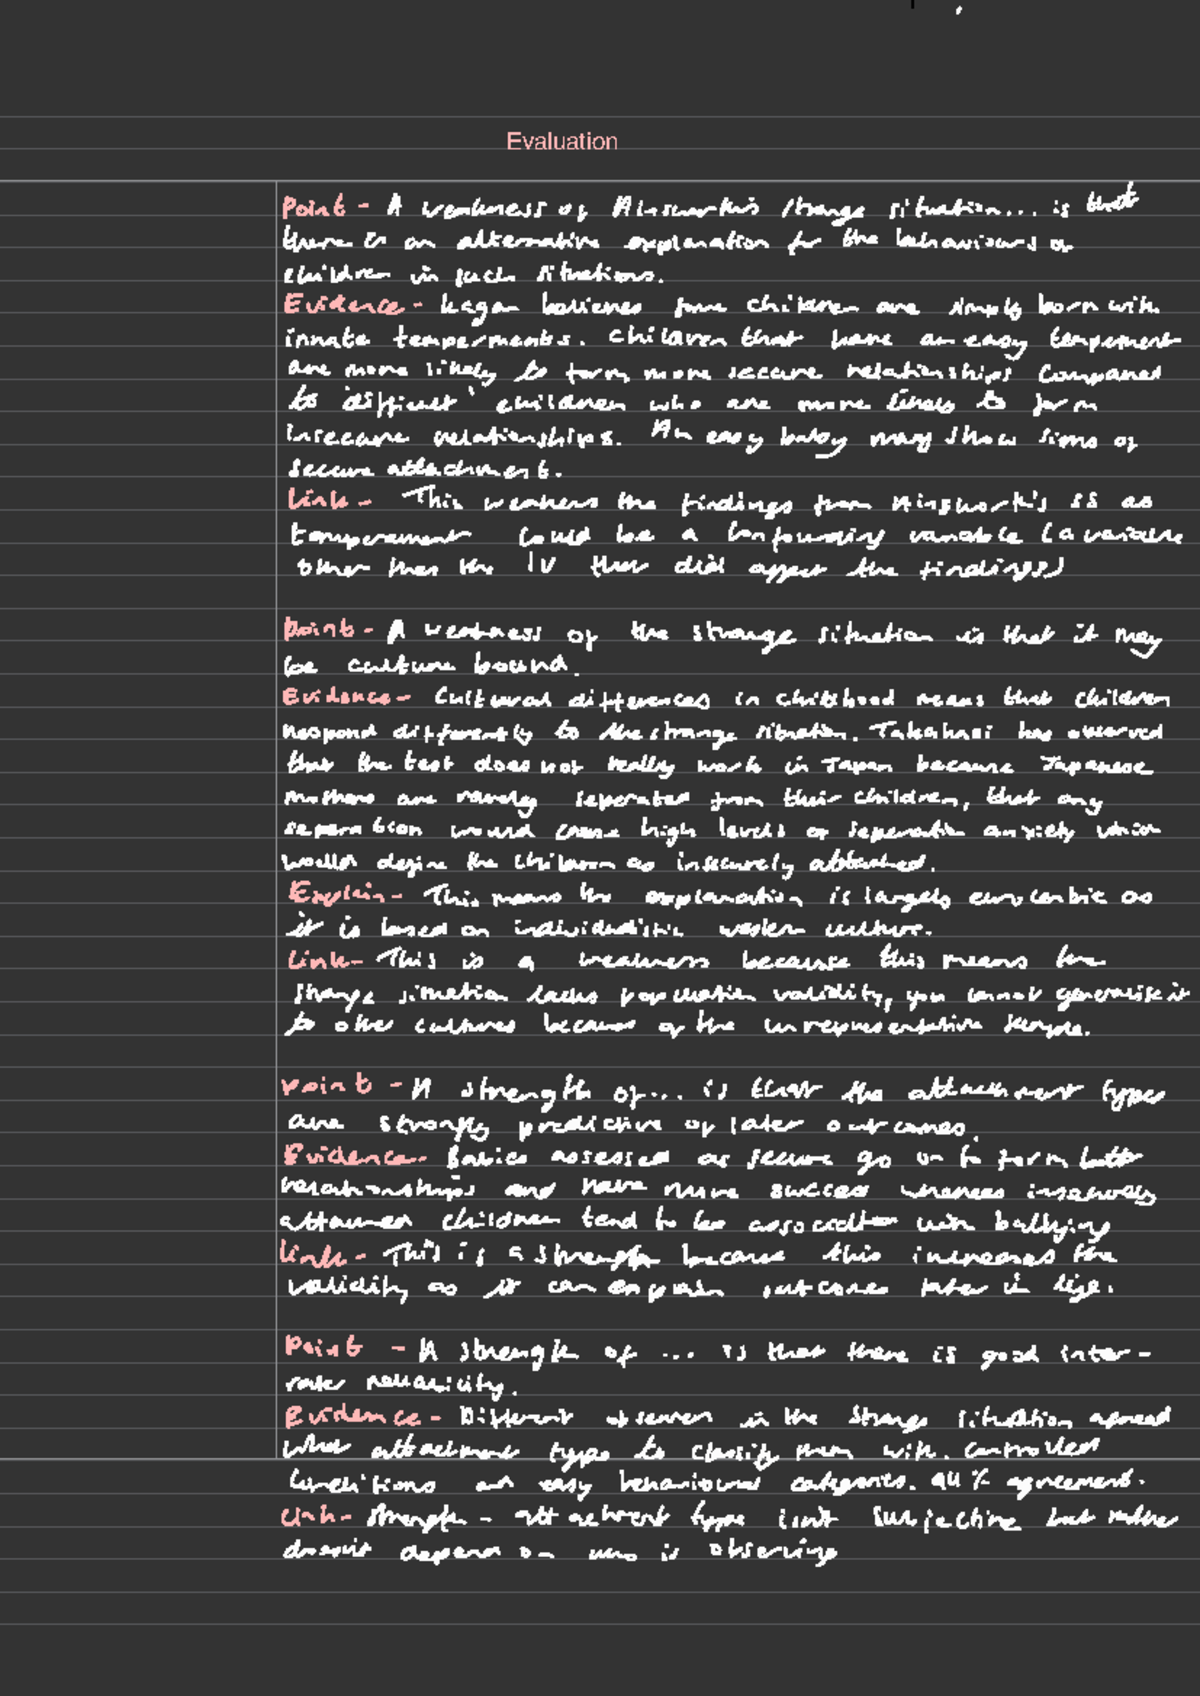 Evaluation
Point - A weakness of Ainsworth's strange situation... is that
there is an alternative explanation for the behaviours of
children in such situations.
Evidence - Kagan believes some children are simply born with
innate temperments. Children that have an easy temperement
are more likely to form more secure relationships compared
to 'difficult' children who are more likely to form
insecure relationships. An easy baby may show signs of
secure attachment.
Link - This weakens the findings from Ainsworth's SS as
temperament could be a confounding variable (a variable
other than the IV that did affect the findings)
Point - A weakness of the strange situation is that it may
be culture bound.
Evidence - Cultural differences in childhood means that children
respond differently to the strange situation. Takahasi has observed
that the test does not really work in Japan because Japanese
mothers are rarely seperated from their children, that any
separation would cause high levels of seperation anxiety which
would define the children as insecurely attached.
Explain - This means the explanation is largely eurocentric as
it is based on individualistic western culture.
Link - This is a weakness because this means the
strange situation lacks population validity, you cannot generalise it
to other cultures because of the unrepresentative sample.
Point - A strength of... is that the attachment types
are strongly predictive of later outcomes.
Evidence - Babies assessed as secure go on to form better
relationships and have more success whereas insecurely
attached children tend to be associated with bullying
Link - This is a strength because this increases the
validity as it can explain outcomes later in life.
Point - A strength of ... is that there is good inter-
rater reliability.
Evidence - Different observers in the strange situation agreed
what attachment types to classify them with. Controlled
conditions and easy behavioural categories. 94% agreement.
Link - strength - attachment types isn't subjective but rather
doesn't depend on who is observing